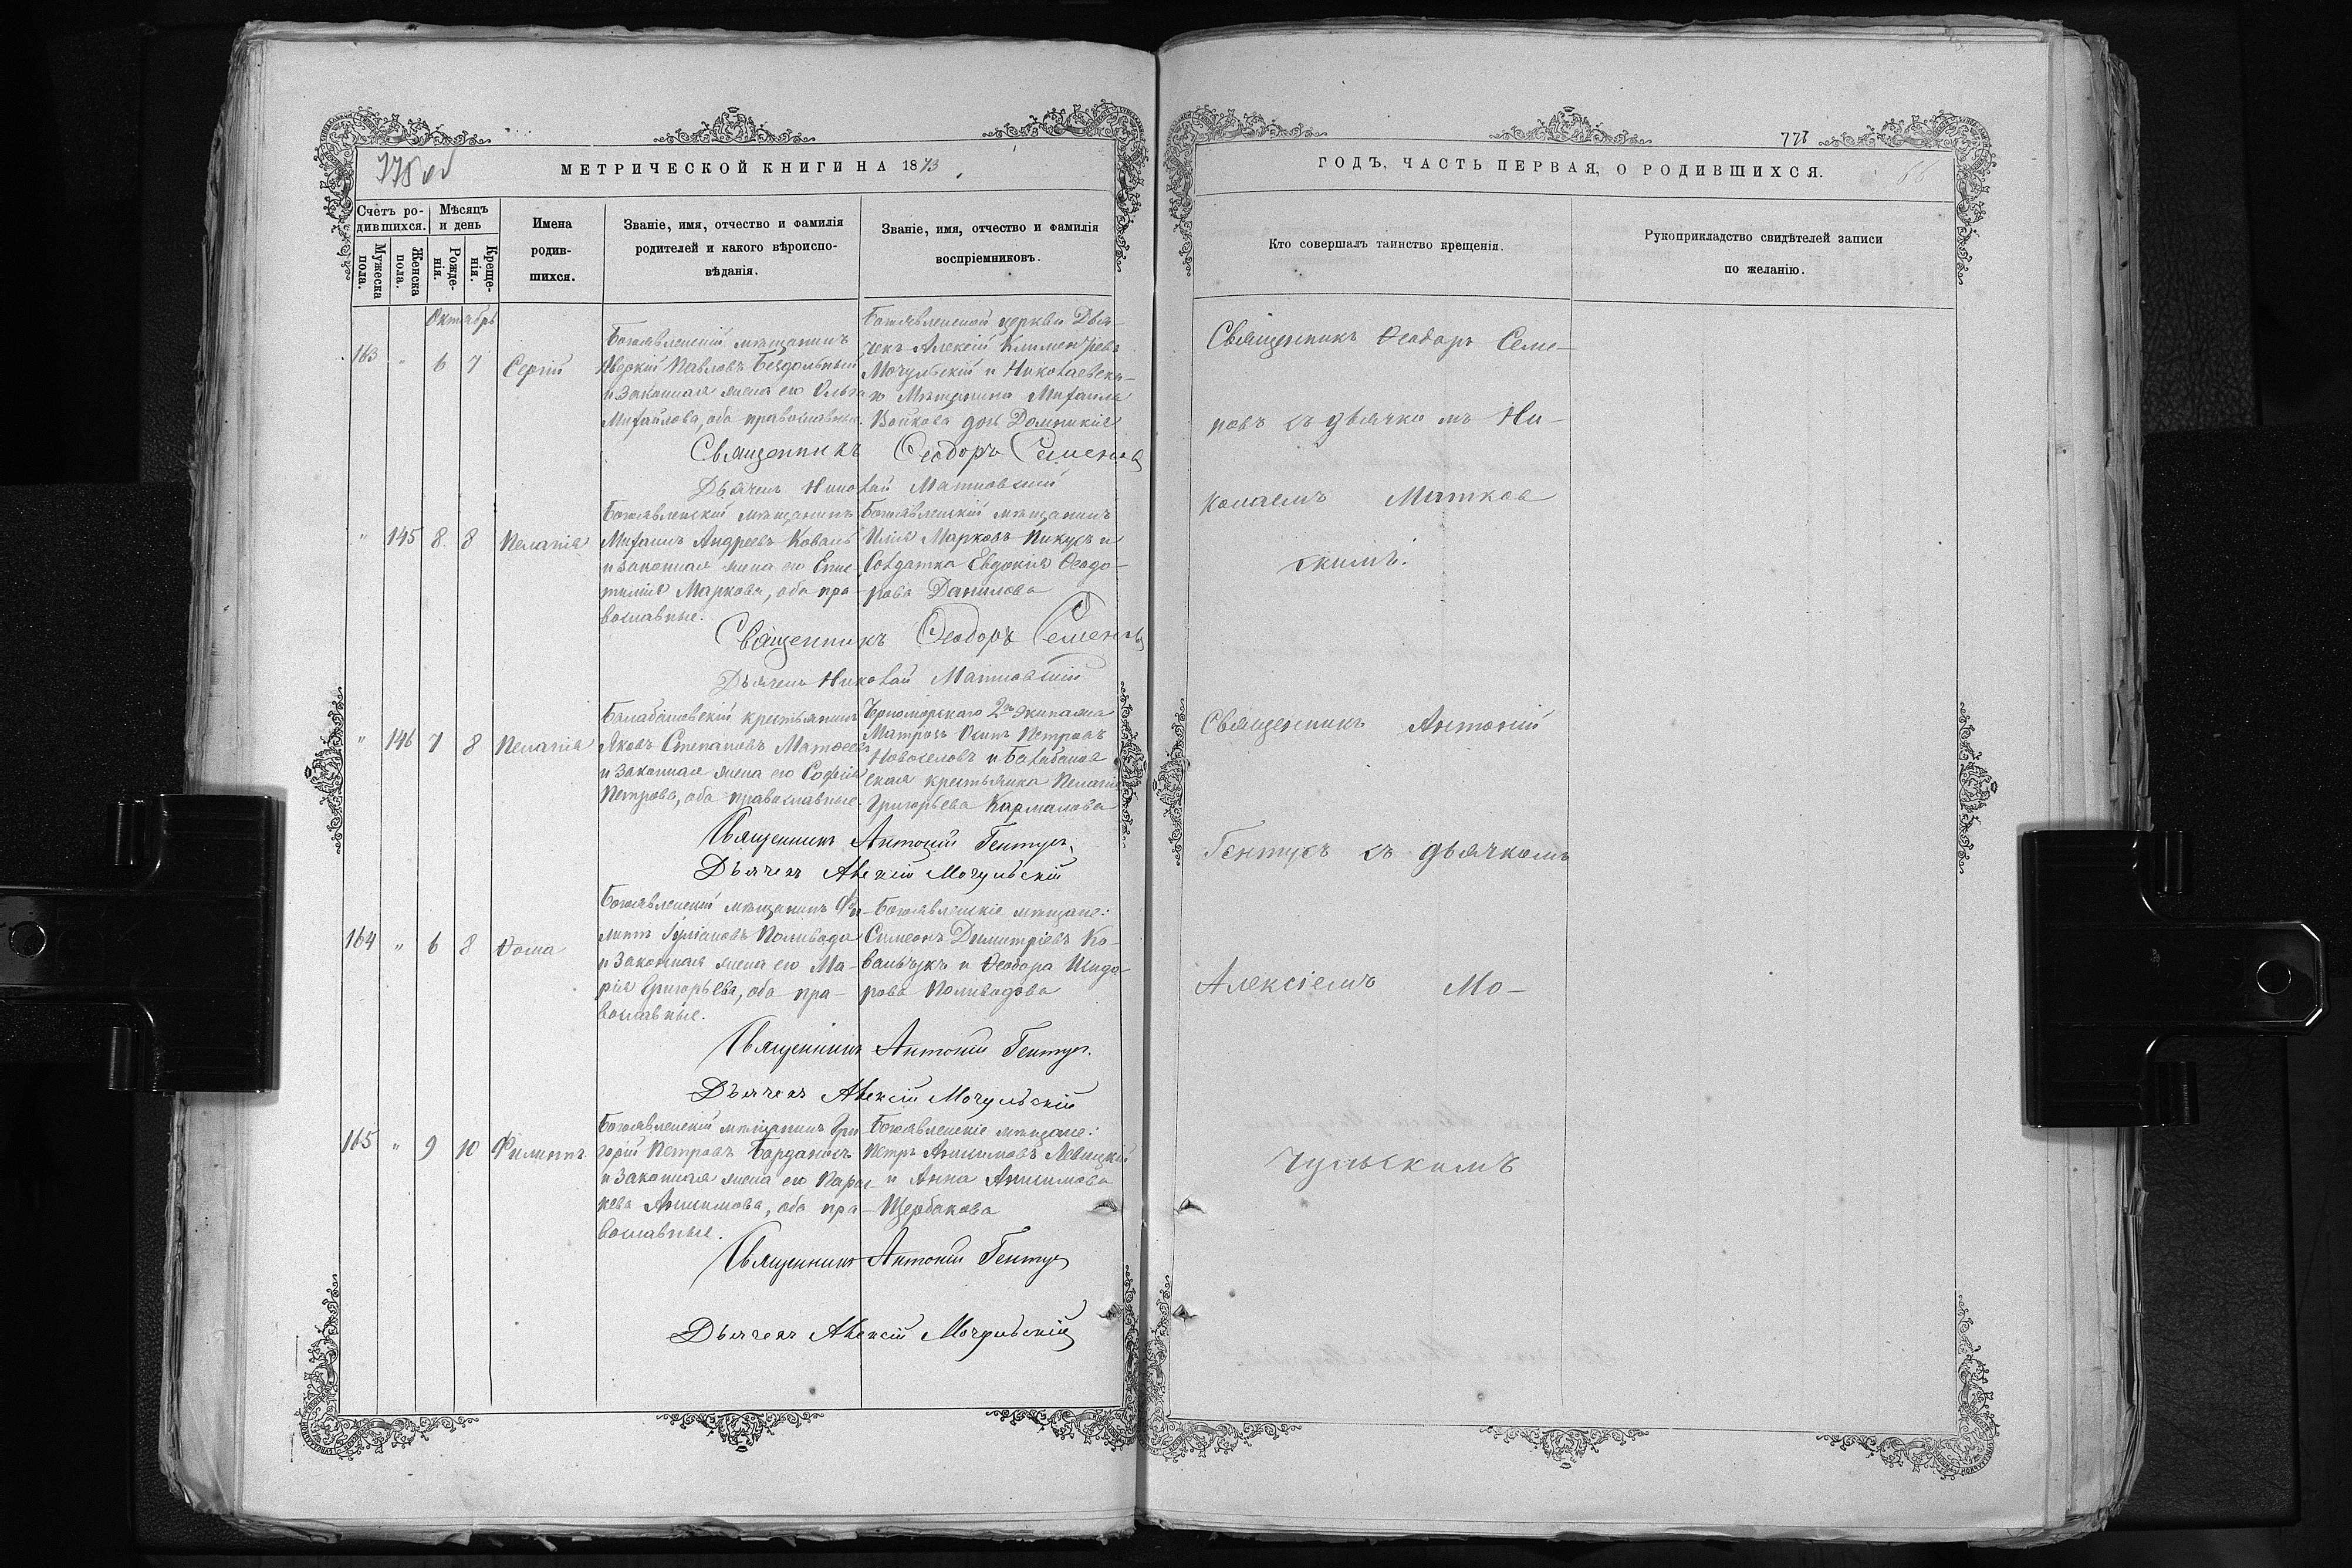 МЕТРИЧЕСКОЙ КНИГИ НА 1873
Счетъ ро-
дившихся.
Мужеска
пола.
Женска
пола.
Мѣсяцъ
и день
Рожде-
нія.
Креще-
нія.
Имена
родив-
шихся.
Званіе, имя, отчество и фамилія
родителей и какого вѣроиспо-
вѣданія.
Званіе, имя, отчество и фамилія
воспріемниковъ.
Октябрь
163 " 6 7 Сергій
Богоявленскій мѣщанинъ
Аверкій Павловъ Бездольный
и законная жена его Ольга
Михайлова, оба православные.
Богоявленской церкви Дья-
чекъ Алексій Климентіевъ
Мочульскій и Николаевска-
го Мѣщанина Михаила
Волкова дочь Домникія
Священникъ Ѳеодоръ Семеновъ
Дьячекъ Николай Матковскій
" 145 8 8 Пелагія
Богоявленскій мѣщанинъ
Михаилъ Андреевъ Коваль
и законная жена его Епис-
тимія Маркова, оба пра-
вославные.
Богоявленскій мѣщанинъ
Илія Марковъ Пикусъ и
Солдатка Евдокія Ѳеодо-
рова Данилова
Священникъ Ѳеодоръ Семеновъ
Дьячекъ Николай Матковскій
" 146 7 8 Пелагія
Балабановскій крестьянинъ
Яковъ Степановъ Матвеевъ
и законная жена его Софія
Петрова, оба православные.
Черноморскаго 2го Экипажа
Матросъ Осипъ Петровъ
Новоселовъ и Балабанов
ская крестьянка Пелагія
Григорьева Кармалова
Священникъ Антоній Гентушъ
Дьячекъ Алексій Мочульскій
164 " 6 8 Ѳома
Богоявленскій мѣщанинъ Фи-
липпъ Іуліановъ Поливода
и законная жена его Ма-
рія Григорьева, оба пра-
вославные.
Богоявленскіе мѣщане:
Симеонъ Димитріевъ Ко-
вальчукъ и Ѳеодора Исидо-
рова Поливодова
Священникъ Антоній Гентушъ
Дьячекъ Алексій Мочульскій
165 " 9 10 Филиппъ
Богоявленскій мѣщанинъ Гри
горій Петровъ Бардакъ
и законная жена его Парас-
кева Анисимова, оба пра-
вославные.
Богоявленскіе мѣщане:
Петръ Анисимовъ Левицкій
и Анна Анисимова
Щербакова
Священникъ Антоній Гентушъ
Дьячекъ Алексій Мочульскій
ГОДЪ, ЧАСТЬ ПЕРВАЯ, О РОДИВШИХСЯ.
Кто совершалъ таинство крещенія.
Рукоприкладство свидѣтелей записи
по желанію.
Священникъ Ѳеодоръ Семе-
новъ съ дьячкомъ Ни-
колаемъ Матков
скимъ.
Священникъ Антоній
Гентушъ съ дьячкомъ
Алексіемъ Мо-
чульскимъ